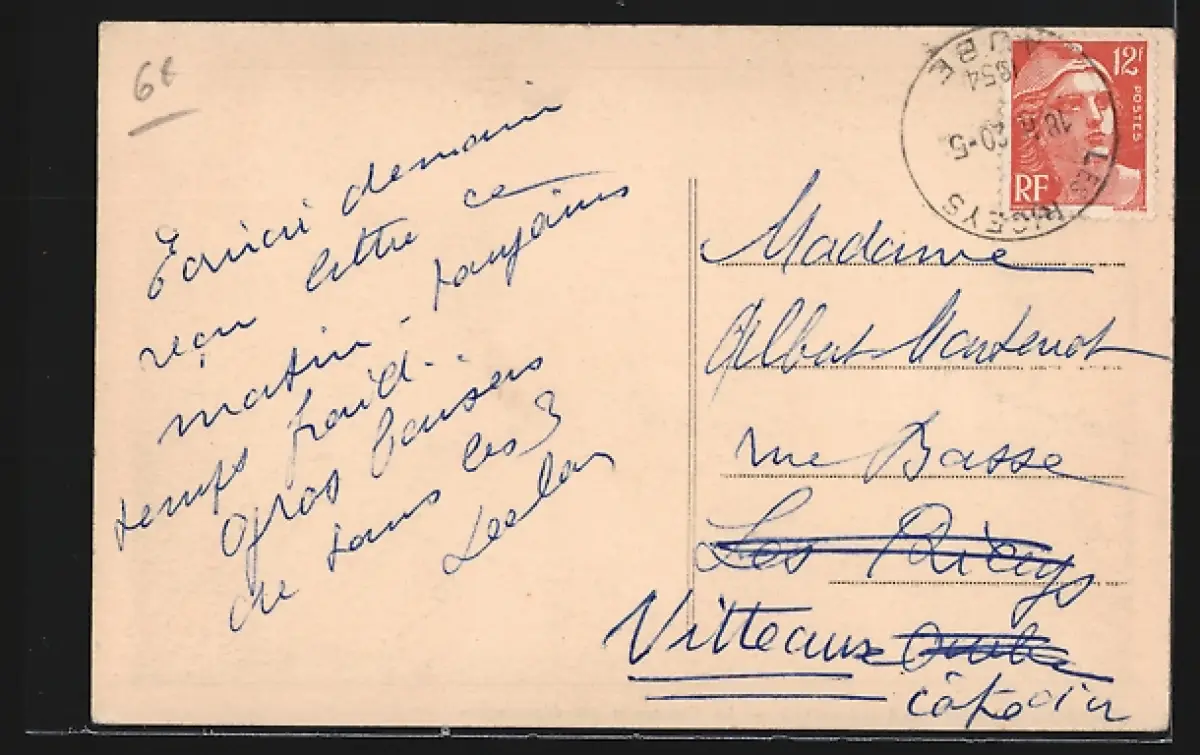 6€
Écrirai demain
reçu lettre ce
matin - toujours
temps froid -
Gros baisers
de tous les 3
12F
POSTES
RF
AUBE
1954
18 20-5
LES RICEYS
Madame
Albert Martenot
rue Basse
Les Riceys
Vitteaux Aube
côte d'or